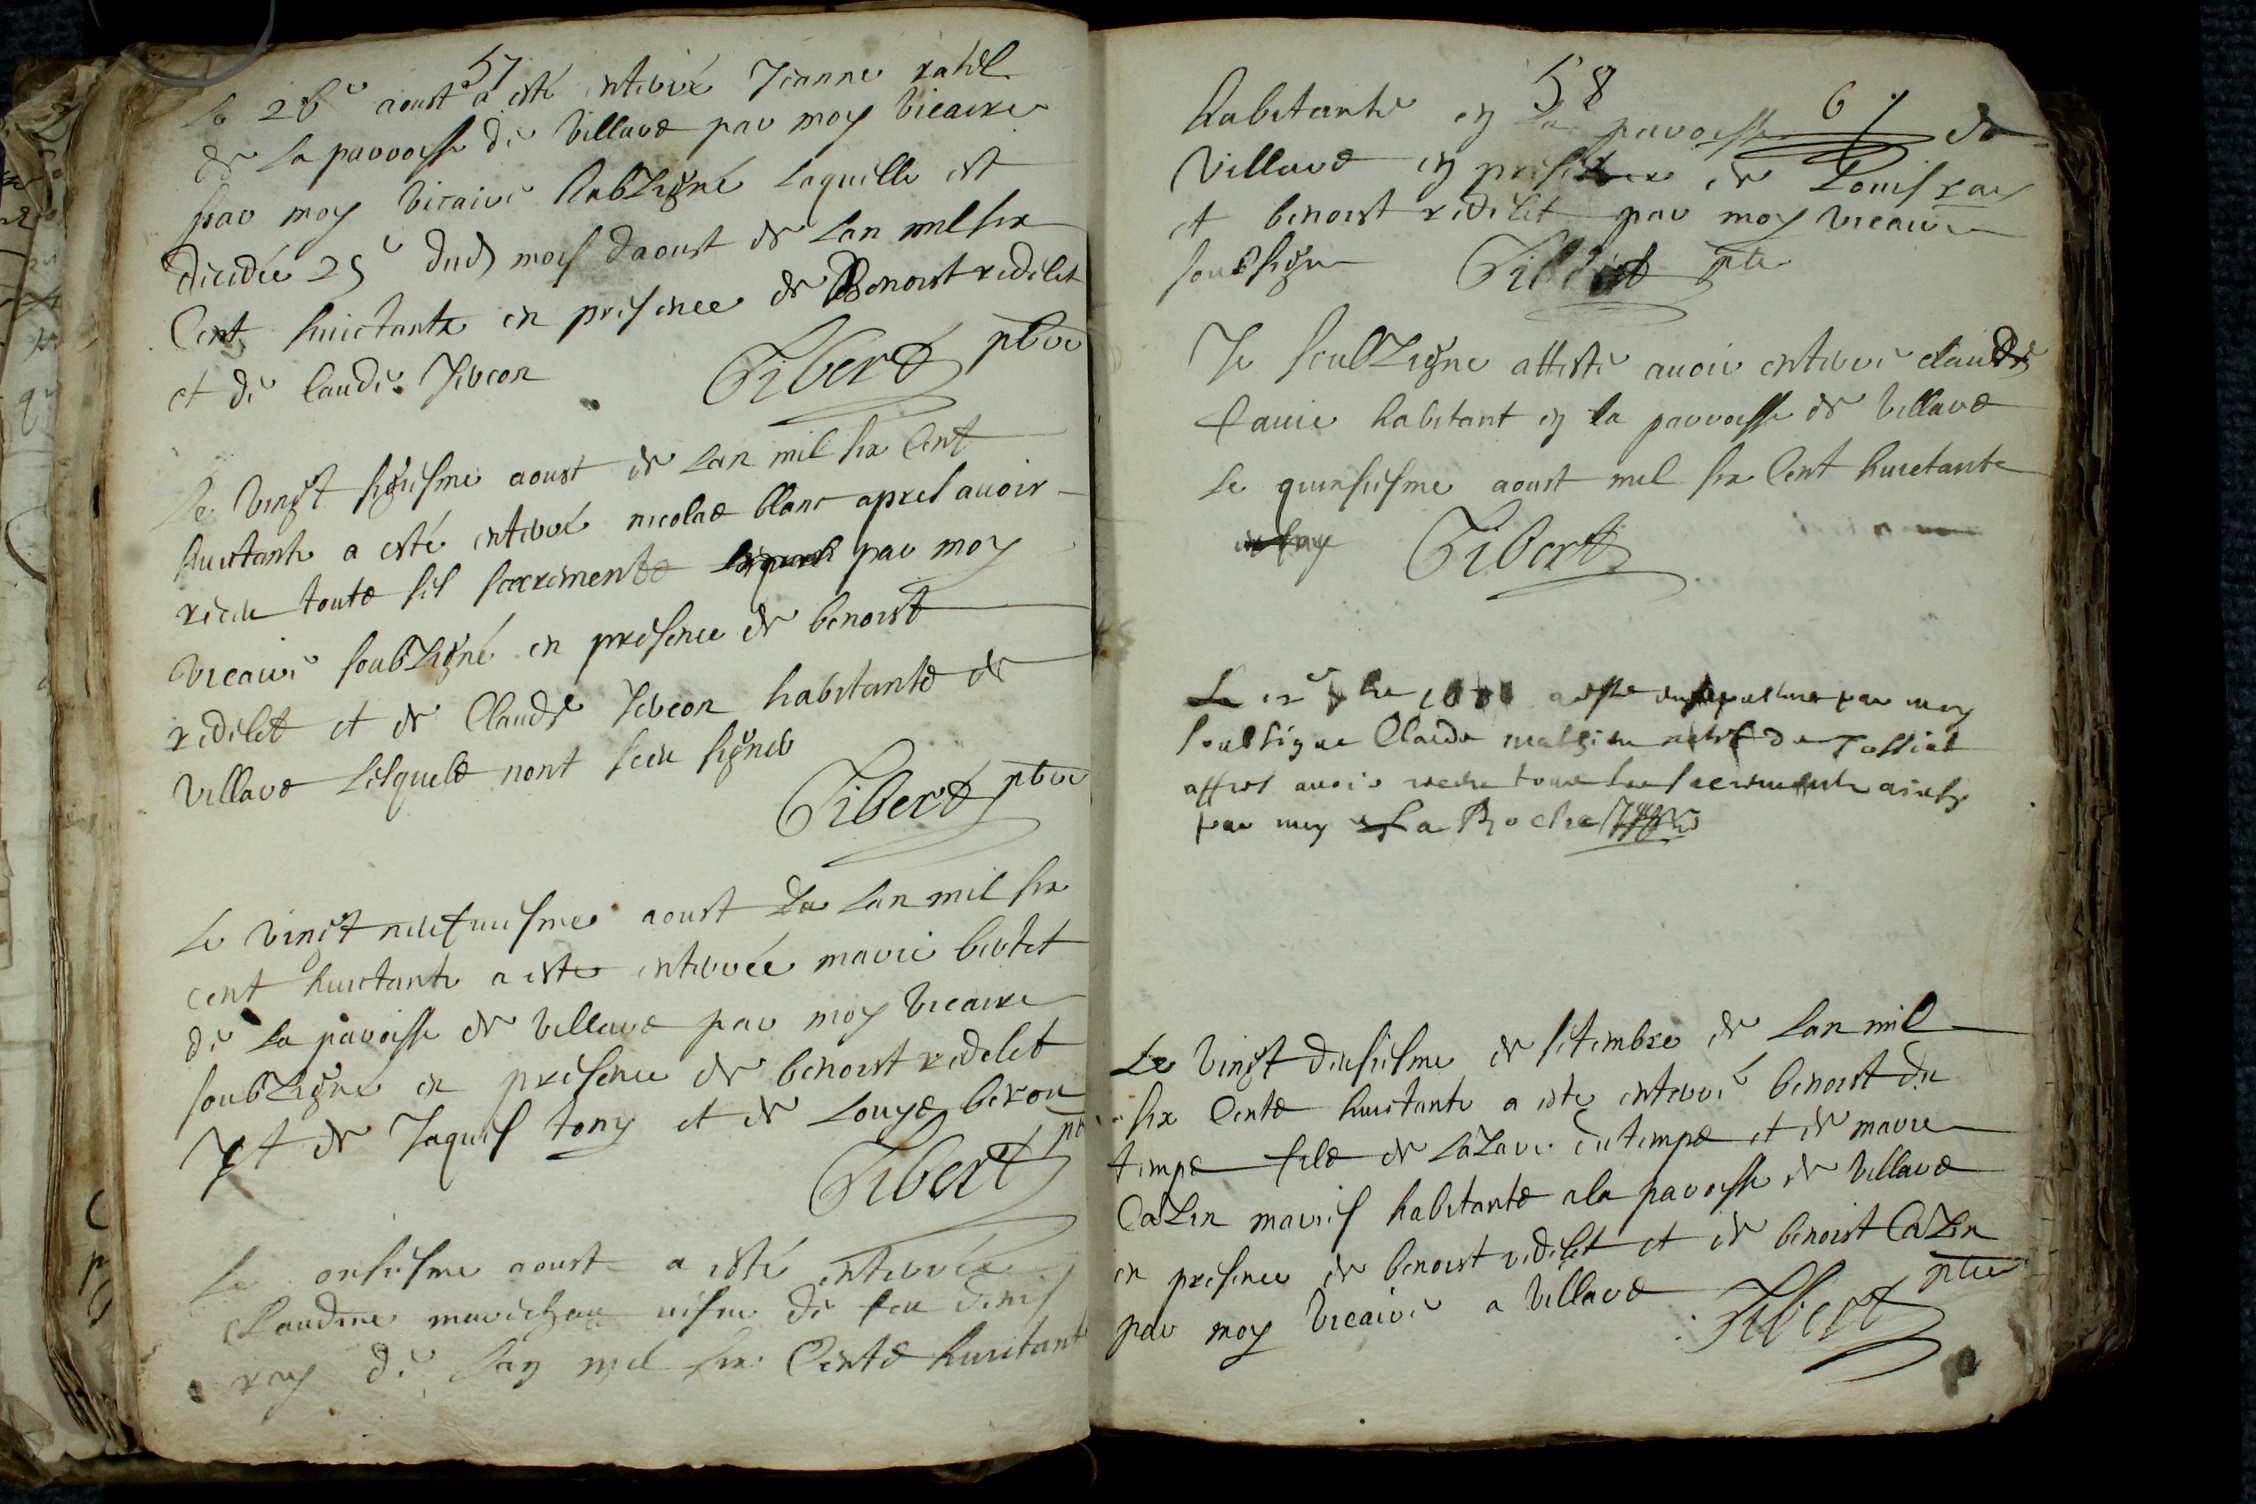 57
Le 26e aoust a esté enterré Jeanne ratel
de La parroisse de Villars par moy Vicaire
par moy Vicaire SoubZigné Laquelle est
decedée 25e dud mois daoust de Lan mil six
Cent huictante en presence de Benoist redelet
et de Caude Tevron Gibert pbre
Le Vingt sixiesme aoust de Lan mil six Cent
huictante a esté enterré nicolas blanc apres avoir
receu touts ses sacrements par moy
Vicaire soubZigné en presence de benoist
redelet et de Claude Tevron habitants de
Villars Lesquels nont sceu signer
Gibert pbre
Le Vingt neufviesme aoust de Lan mil six
cent huictante a este enterrée marie bertet
de La paroisse de Villars par moy Vicaire
soubZigné en presence de benoist redelet
et de Jaques tony et de Louys beron
Gibert pbre
Le onsiesme aoust a esté enterrée
Claudine marechau vefve de feu denis
rey de Lan mil six Cents huictante
58
67
habitants en La paroisse de
Villars en presence de Louis ray
et benoist redelet par moy Vicaire
soubsigne Gibert pbre
Je SoubZigne atteste avoir enterré claude
favre habitant en la parroisse de Villars
Le quinsiesme aoust mil six Cent huictante
Gibert
Le a este par moy
soubsigne Claude natif de
apres avoir receu tous les sacrements ainsy
par moy La Roche
Le Vingt diesiesme de setembre de Lan mil
six Cents huictante a este enterré benoist du
temps fils de LaZare du temps et de marie
CaZin mariés habitants a la paroisse de Villars
en presence de benoist redelet et de benoist CaZin
par moy Vicaire a Villars Gibert pbre